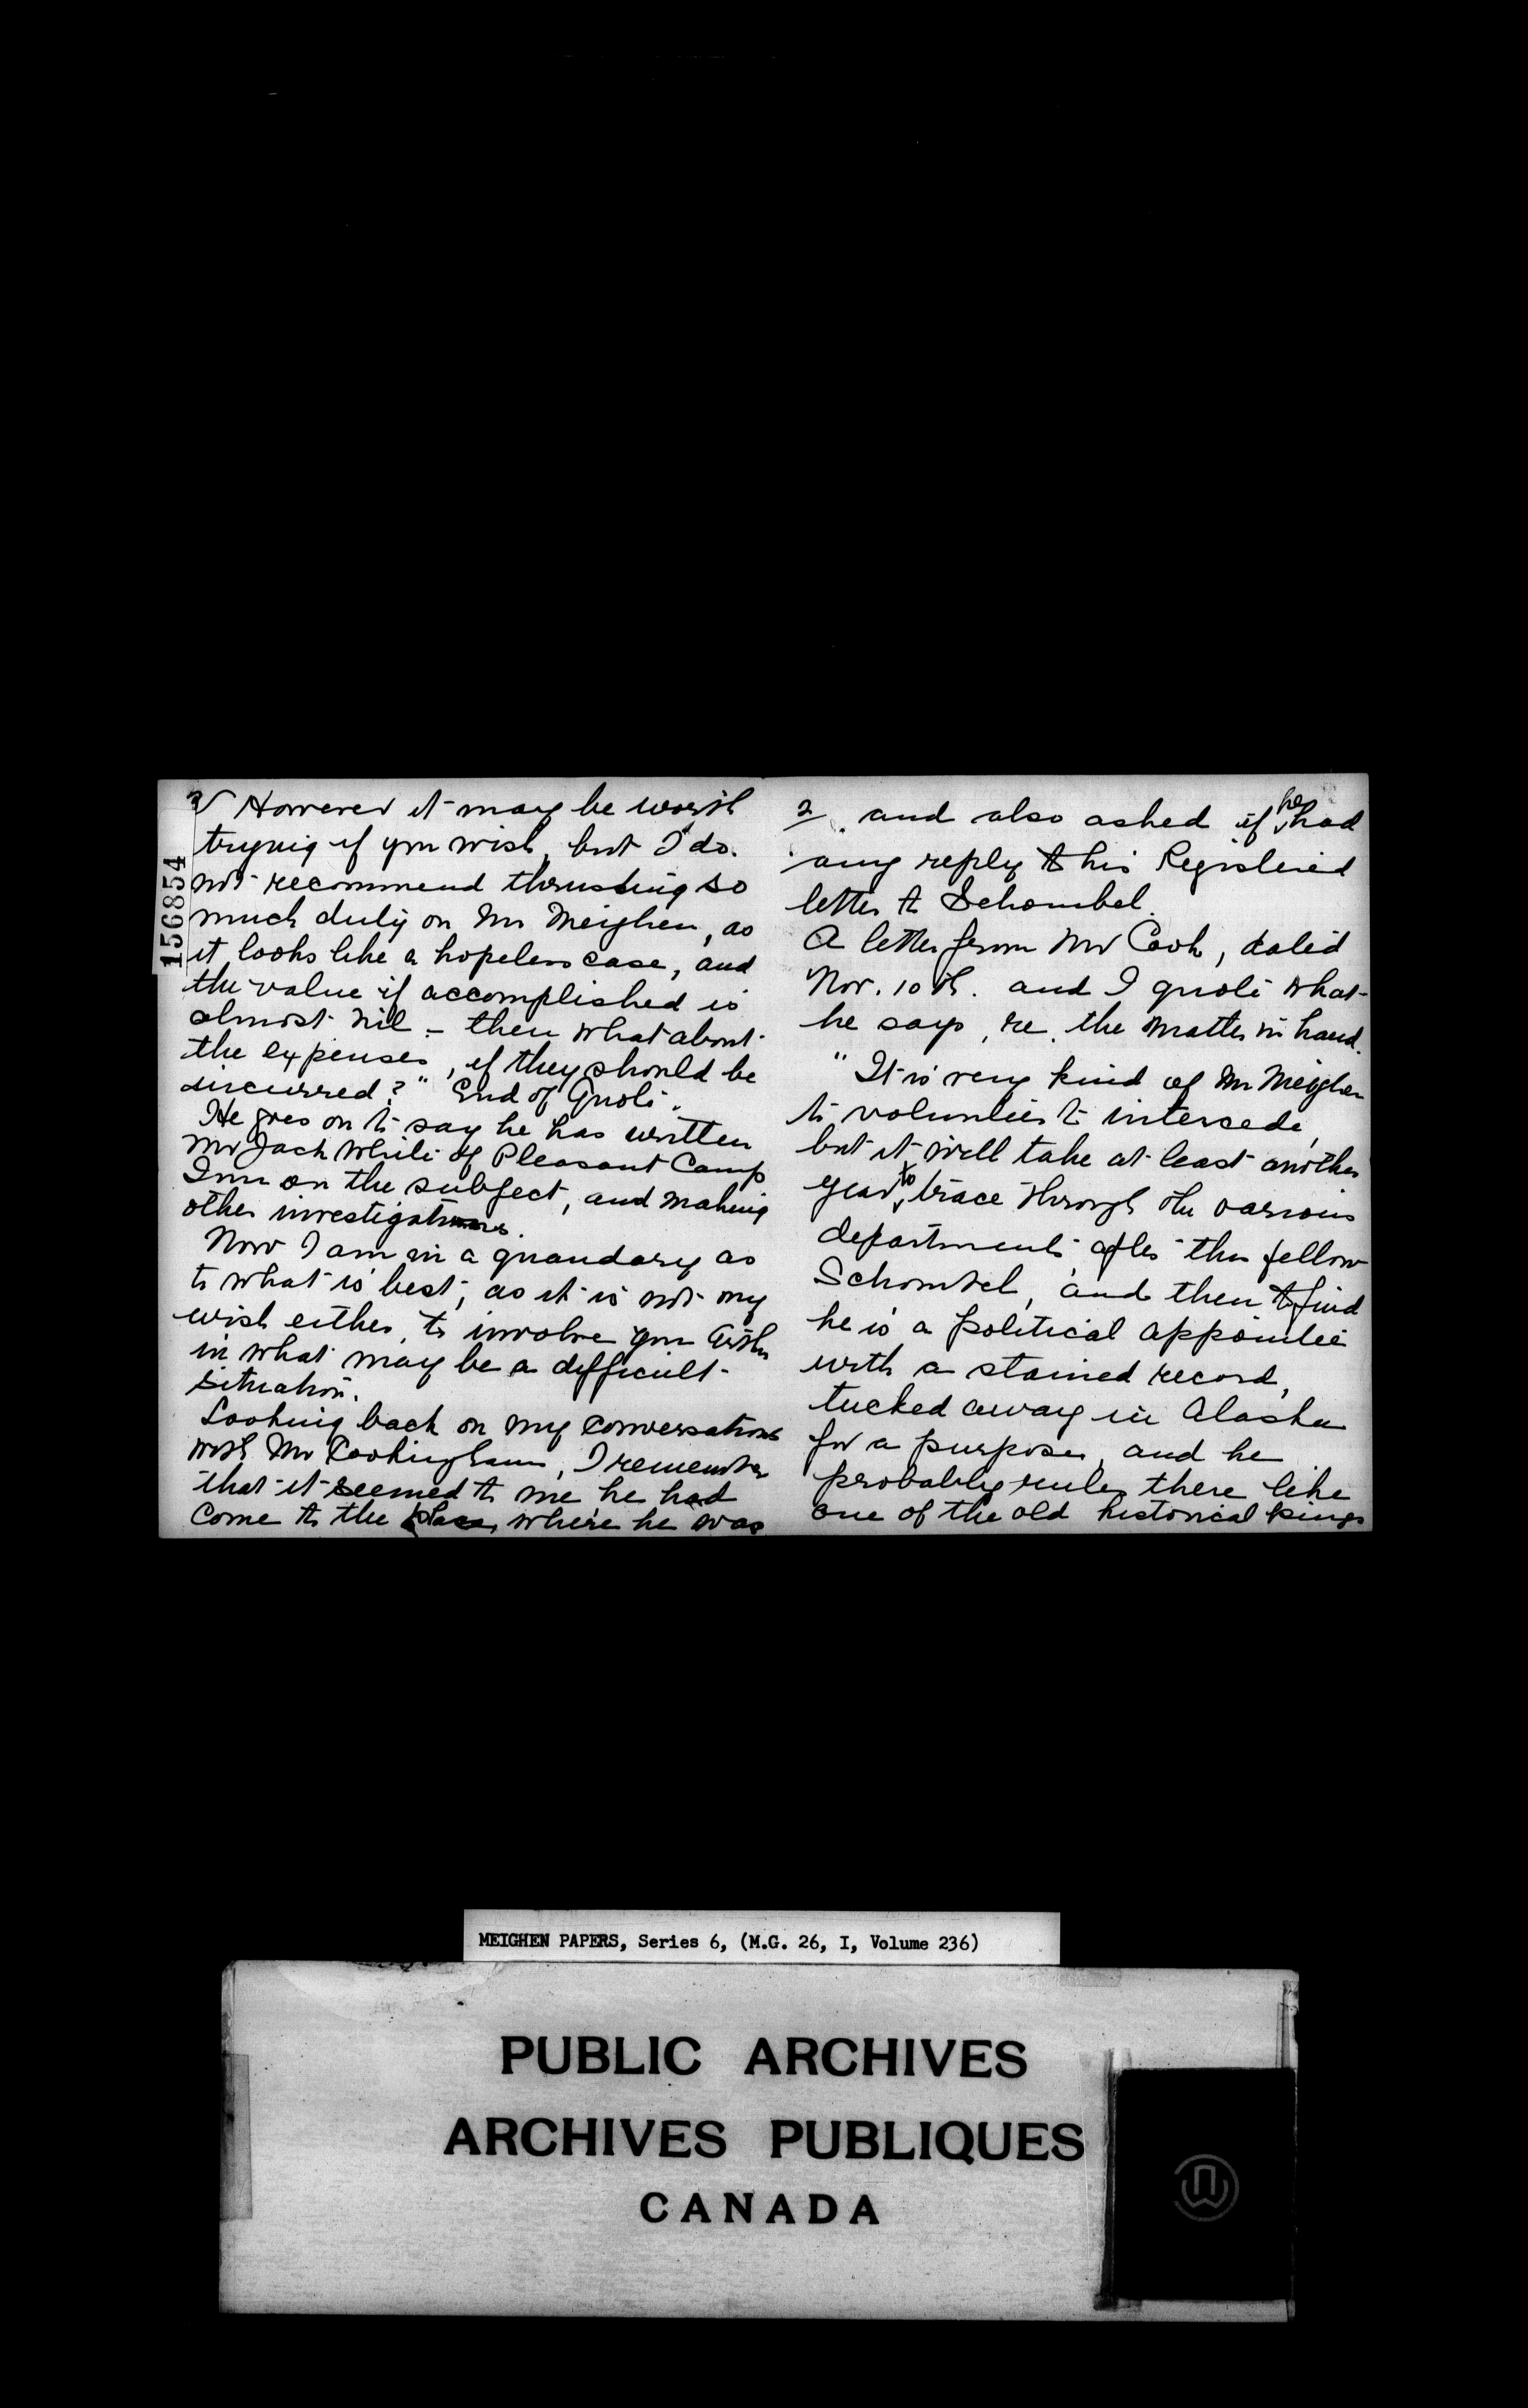 156854
3/ However it may be worth
trying if you wish, but I do
not recommend thrusting so
much duty on Mr Meighen, as
it looks like a hopeless case, and
the value if accomplished is
almost nil – then what about
the expenses, if they should be
incurred?" End of Quote.
He goes on to say he has written
Mr Jack White of Pleasant Camp
Inn on the subject, and making
other investigations.
Now I am in a quandary as
to what is best, as it is not my
wish either, to involve you Arthur
in what may be a difficult
situation.
Looking back on my conversations
with Mr Cookingham, I remember
that it seemed to me he had
come to the place, where he was
2/ and also asked if he had
any reply to his Registered
letter to Schombel.
A letter from Mr Cook, dated
Nov. 10th. and I quote what
he says, re. the matter in hand.
"It is very kind of Mr Meighen
to volunteer to intersede,
but it will take at least another
year to trace through the various
departments, after this fellow
Schombel, and then to find
he is a political appointee
with a stained record,
tucked away in Alaska
for a purpose, and he
probably rules there like
one of the old historical kings
MEIGHEN PAPERS, Series 6, (M.G. 26, I, Volume 236)
PUBLIC ARCHIVES
ARCHIVES PUBLIQUES
CANADA